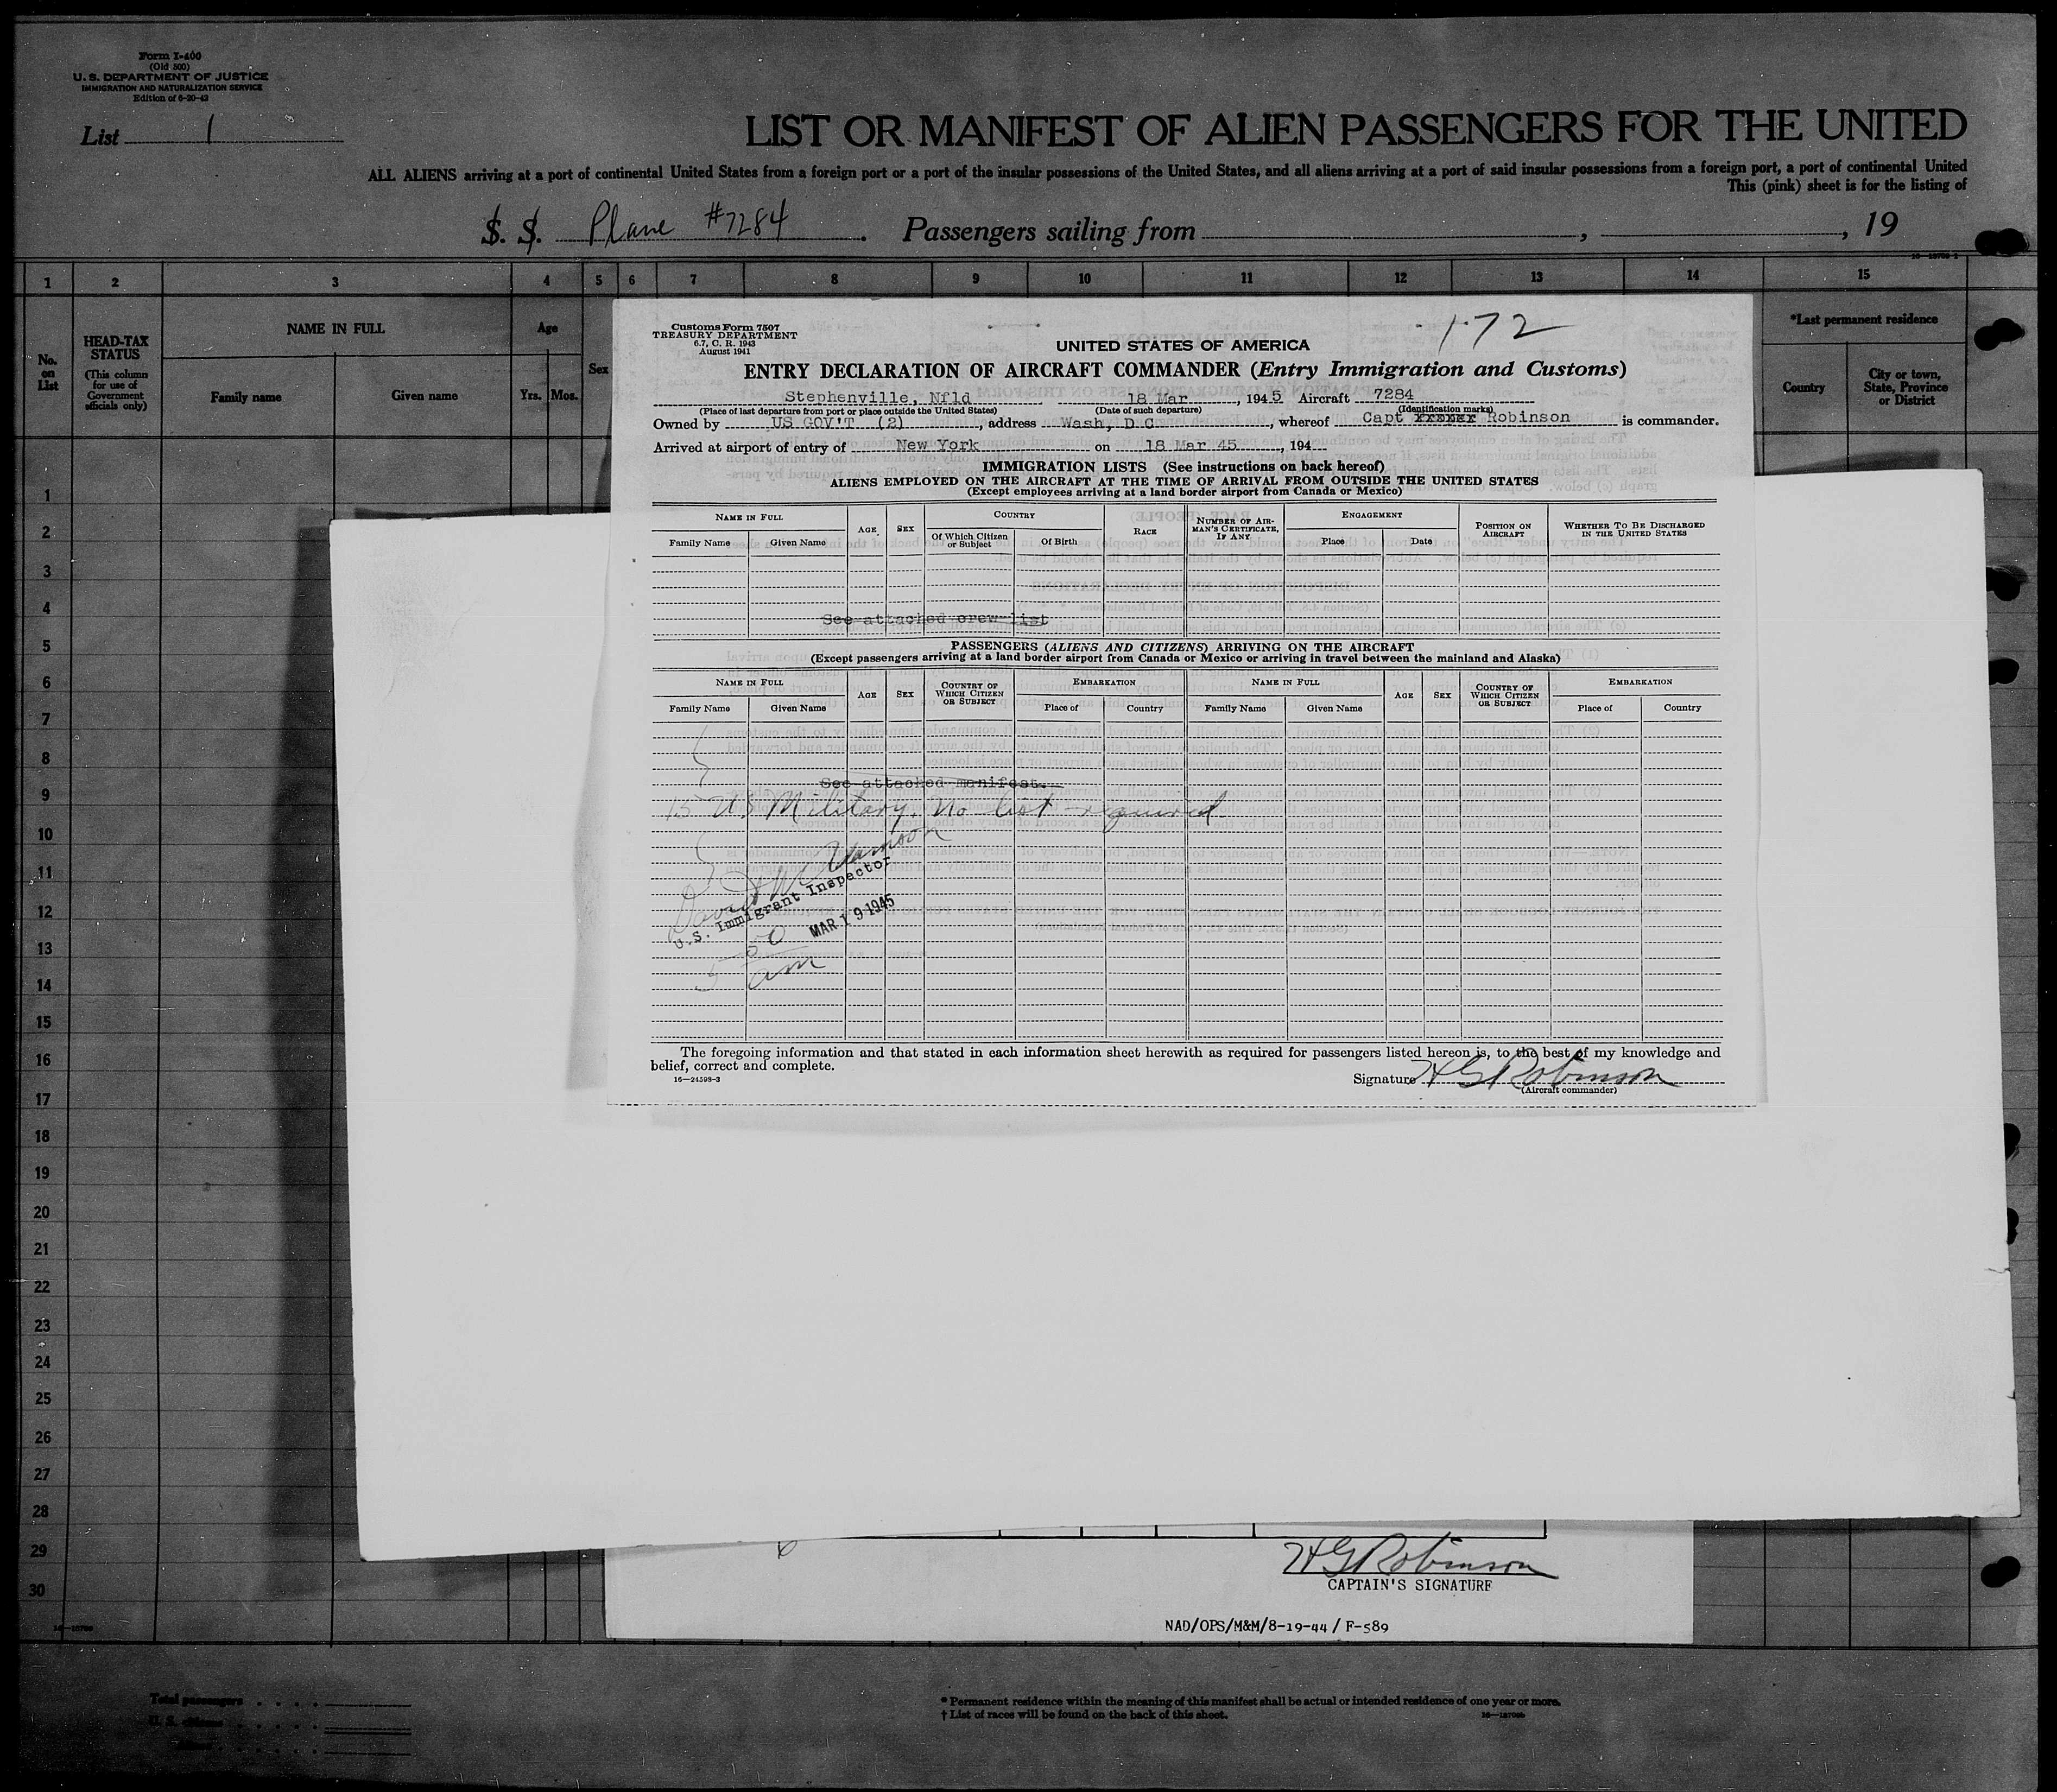 Form I-400
(Old 500)
U. S. DEPARTMENT OF JUSTICE
IMMIGRATION AND NATURALIZATION SERVICE
Edition of 6-20-42
List 1
LIST OR MANIFEST OF ALIEN PASSENGERS FOR THE UNITED
ALL ALIENS arriving at a port of continental United States from a foreign port or a port of the insular possessions of the United States, and all aliens arriving at a port of said insular possessions from a foreign port, a port of continental United
This (pink) sheet is for the listing of
S. S. Plane #7284. Passengers sailing from , , 19
1 2 3 4 5 6 7 8 9 10 11 12 13 14 15
No. on List
HEAD-TAX STATUS
(This column for use of Government officials only)
NAME IN FULL
Family name Given name
Age
Yrs. Mos.
Sex
*Last permanent residence
Country
City or town, State, Province or District
Customs Form 7507
TREASURY DEPARTMENT
6.7, C. R. 1943
August 1941
172
UNITED STATES OF AMERICA
ENTRY DECLARATION OF AIRCRAFT COMMANDER (Entry Immigration and Customs)
Stephenville, Nfld 18 Mar, 1945 Aircraft 7284
(Place of last departure from port or place outside the United States) (Date of such departure) (Identification marks)
Owned by US GOV'T (2), address Wash, D C, whereof Capt Robinson is commander.
Arrived at airport of entry of New York on 18 Mar 45, 194
IMMIGRATION LISTS (See instructions on back hereof)
ALIENS EMPLOYED ON THE AIRCRAFT AT THE TIME OF ARRIVAL FROM OUTSIDE THE UNITED STATES
(Except employees arriving at a land border airport from Canada or Mexico)
NAME IN FULL AGE SEX COUNTRY RACE NUMBER OF AIRMAN'S CERTIFICATE, IF ANY ENGAGEMENT POSITION ON AIRCRAFT WHETHER TO BE DISCHARGED IN THE UNITED STATES
Family Name Given Name Of Which Citizen or Subject Of Birth Place Date
See attached crew list
PASSENGERS (ALIENS AND CITIZENS) ARRIVING ON THE AIRCRAFT
(Except passengers arriving at a land border airport from Canada or Mexico or arriving in travel between the mainland and Alaska)
NAME IN FULL AGE SEX COUNTRY OF WHICH CITIZEN OR SUBJECT EMBARKATION NAME IN FULL AGE SEX COUNTRY OF WHICH CITIZEN OR SUBJECT EMBARKATION
Family Name Given Name Place of Country Family Name Given Name Place of Country
See attached manifest.
15 US Military. No list required
U.S. Immigrant Inspector
MAR 19 1945
5 50 am
The foregoing information and that stated in each information sheet herewith as required for passengers listed hereon is, to the best of my knowledge and
belief, correct and complete.
16—24598-3
Signature H G Robinson
(Aircraft commander)
1
2
3
4
5
6
7
8
9
10
11
12
13
14
15
16
17
18
19
20
21
22
23
24
25
26
27
28
29
30
H G Robinson
CAPTAIN'S SIGNATURE
NAD/OPS/M&M/8-19-44 / F-589
Total passengers
U. S. citizens
* Permanent residence within the meaning of this manifest shall be actual or intended residence of one year or more.
† List of races will be found on the back of this sheet.